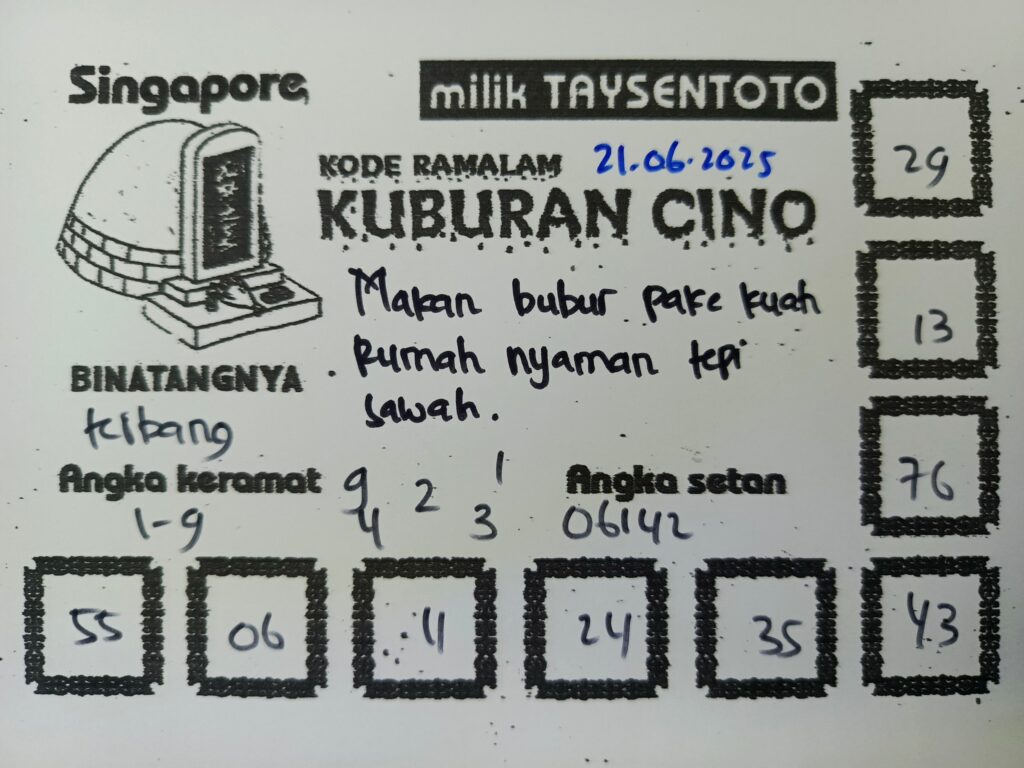 Singapore
milik TAYSENTOTO
KODE RAMALAM 21.06.2025
KUBURAN CINO
Makan bubur pake kuah
Rumah nyaman tepi
sawah.
BINATANGNYA
Angka keramat
1-9
9 2 1
4 3
Angka setan
06142
29
13
76
55 06 11 24 35 43